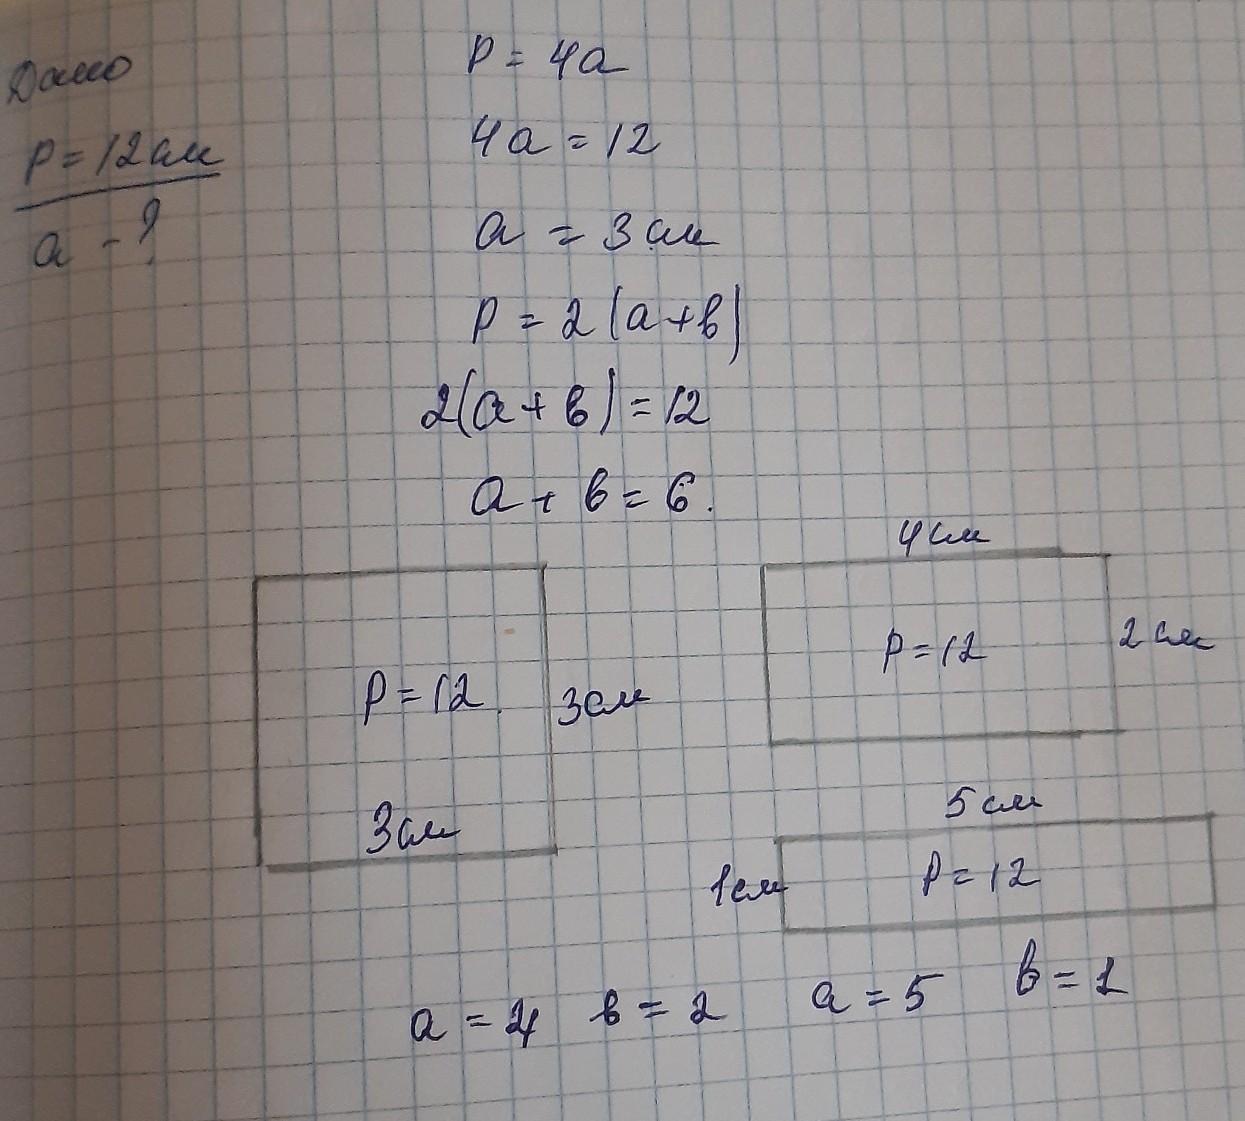 Дано
P = 12 см
a - ?
P = 4a
4a = 12
a = 3 см
P = 2(a+b)
2(a+b) = 12
a + b = 6.
4 см
P = 12
2 см
P = 12.
3 см
3 см
5 см
1 см
P = 12
a = 4 b = 2 a = 5 b = 1